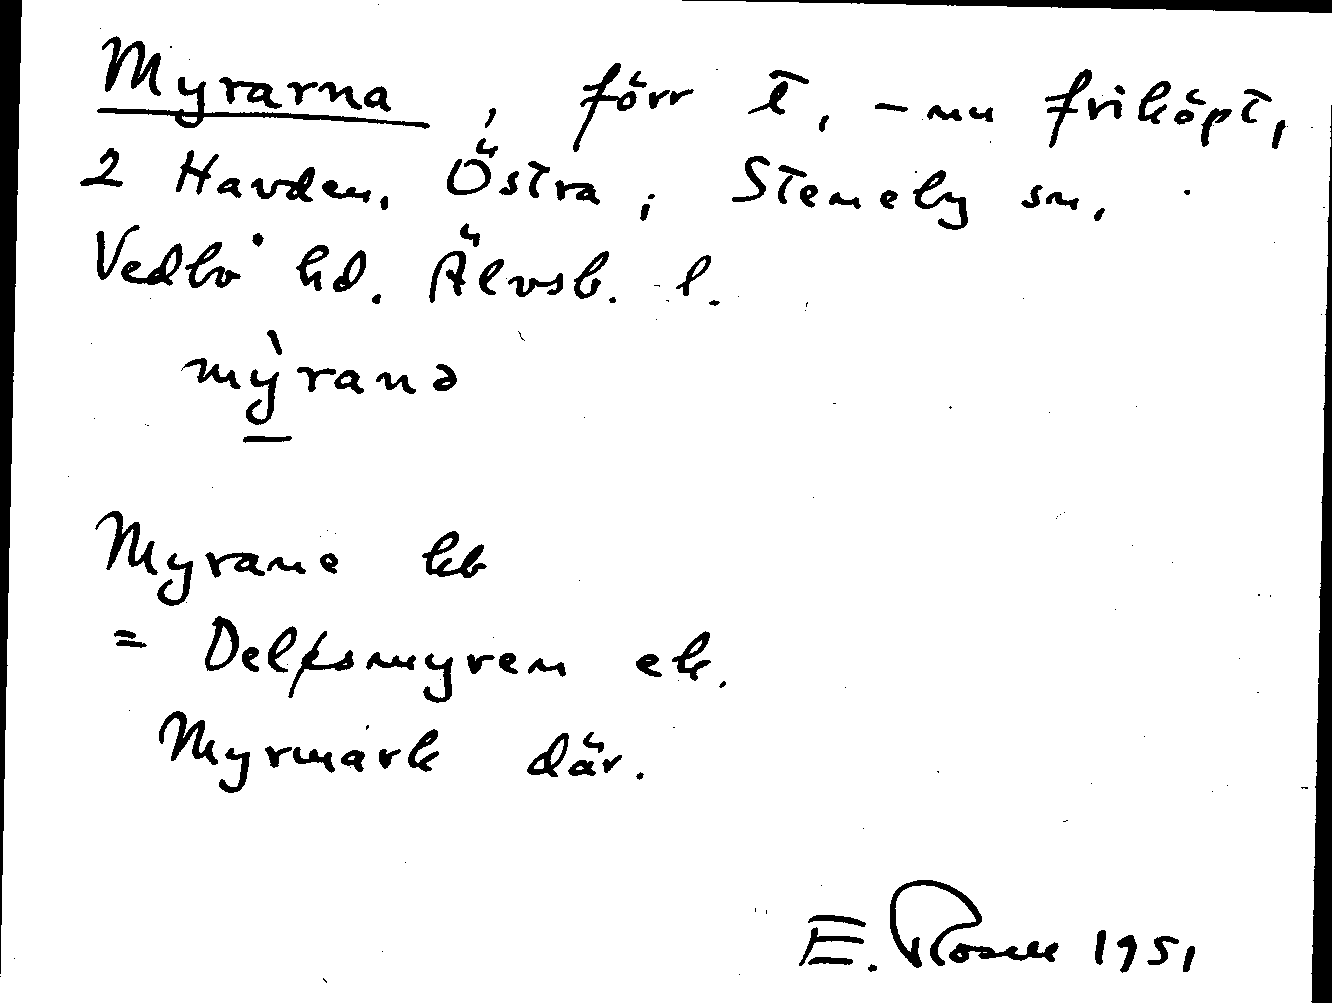 Myrarna, förr t, - nu friköpt,
2 Havden, Östra, Steneby sn,
Vedbo hd. Älvsb. l.
mỳranə
Myrane kb
= Delfsmyren ek.
Myrmark där.
E. Rosell 1951